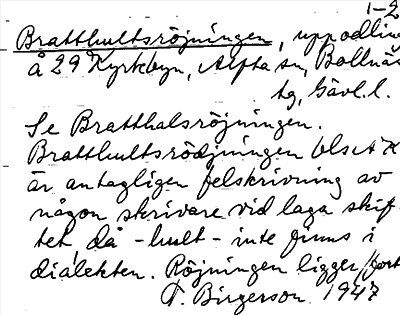 1-2
Bratthultsröjningen, uppodlin
å 29 Kyrkbyn, Alfta sn, Bollnäs
tg, Gävl. l.
Se Bratthalsröjningen.
Bratthultsrödjningen LlsA K
är antagligen felskrivning av
någon skrivare vid laga skif-
tet, då -hult- inte finns i
dialekten. Röjningen ligger
Birgerson 1947